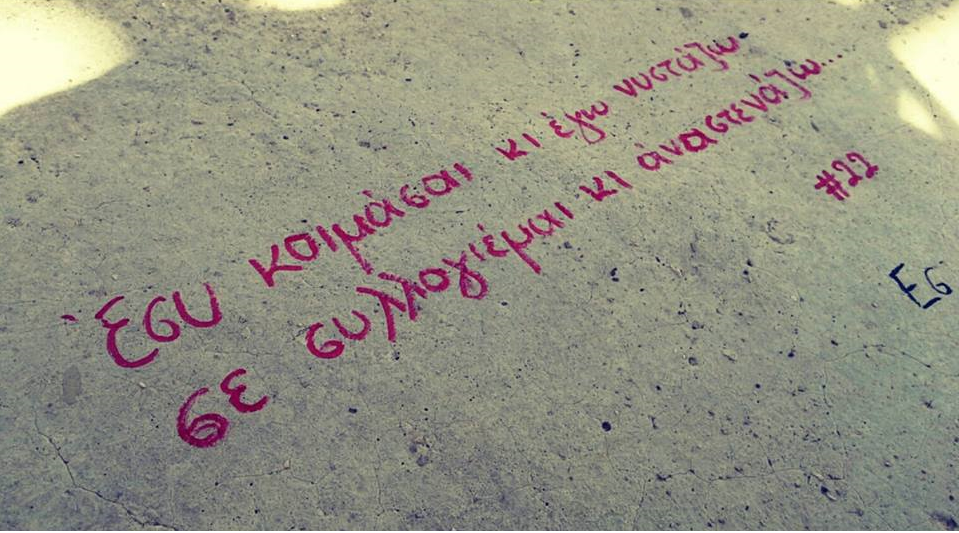 Ἐσυ κοιμάσαι κι ἐγω νυστάζω.
σε συλλογιέμαι κι ἀναστενάζω...
#22
Εσ